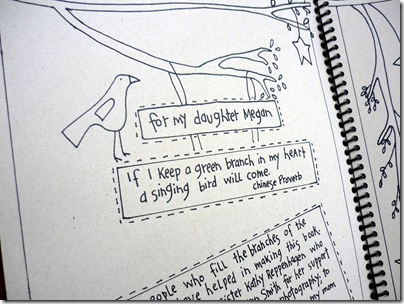 for my daughter Megan
If I keep a green branch in my heart
a singing bird will come.
Chinese Proverb
people who fill the branches of the
have helped in making this book.
sister Kelly Reppenhagen who
Smith for her support
photography; to
my mom